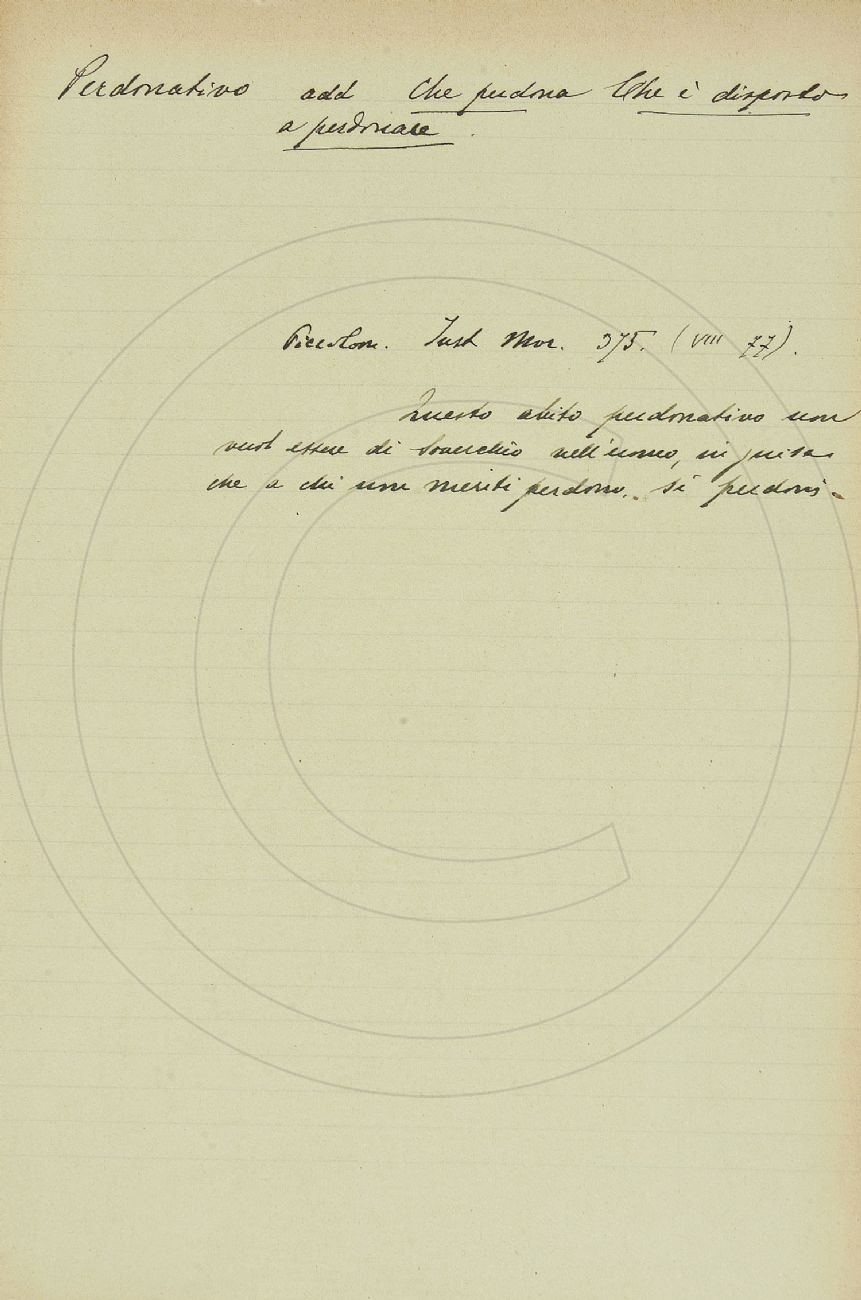 Perdonativo add Che perdona Che è disposto
a perdonare.
Piccolom. Inst Mor. 375. (VIII 77).
Questo abito perdonativo non
vuol essere di soverchio nell'uomo, in guisa
che a chi non meriti perdono, si perdoni.